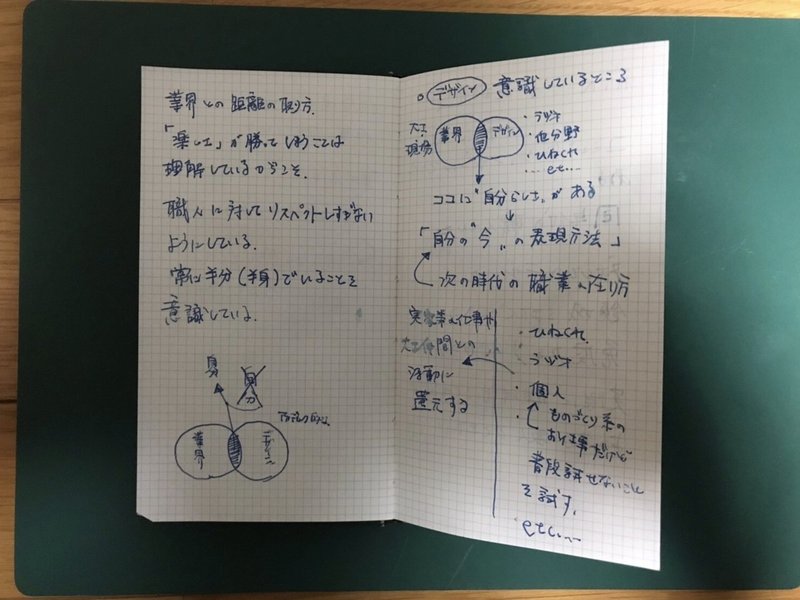 業界との距離の取り方.
「楽しさ」が勝ってしまうことは
理解しているからこそ.
職人に対してリスペクトしすぎない
ようにしている.
常に半分(半身)でいることを
意識している.
自分
業界
デザイン
デザイン 意識しているところ
大工・現場
業界
デザイン
・ラジオ
・他分野
・ひねくれ
... etc...
ココに"自分らしさ"がある
「自分の"今"の表現方法」
次の時代の職業の在り方
実家の仕事や
大工仲間との
活動に
還元する
・ひねくれ.
・ラジオ
・個人
・ものづくり系の
お仕事だけど
普段試せないこと
を試す.
etc...